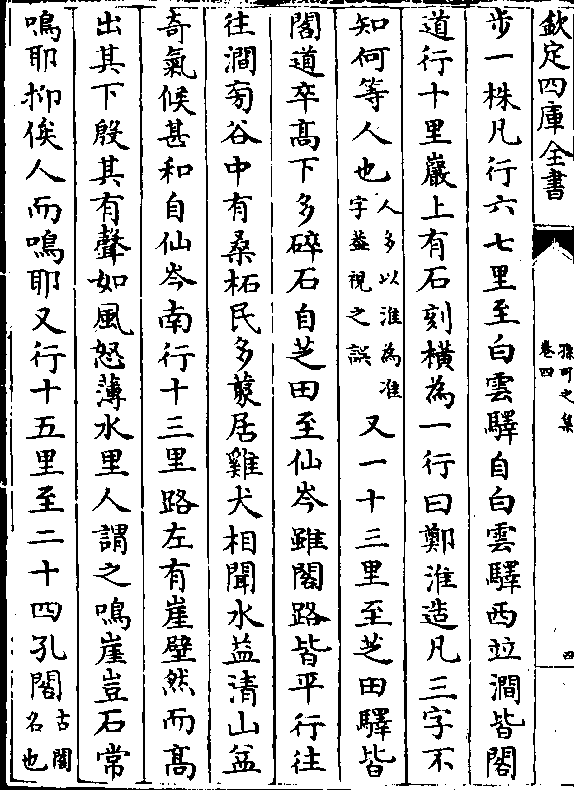 欽定四庫全書
孫可之集
卷四
四
步一株凡行六七里至白雲驛自白雲驛西竝澗皆閣
道行十里巖上有石刻橫為一行曰鄭淮造凡三字不
知何等人也人多以淮為准字葢視之誤又一十三里至芝田驛皆
閣道卒高下多碎石自芝田至仙岑雖閣路皆平行往
往澗旁谷中有桑柘民多藂居雞犬相聞水益清山益
奇氣候甚和自仙岑南行十三里路左有崖壁然而高
出其下殷其有聲如風怒薄水里人謂之鳴崖豈石常
鳴耶抑俟人而鳴耶又行十五里至二十四孔閣古閣名也